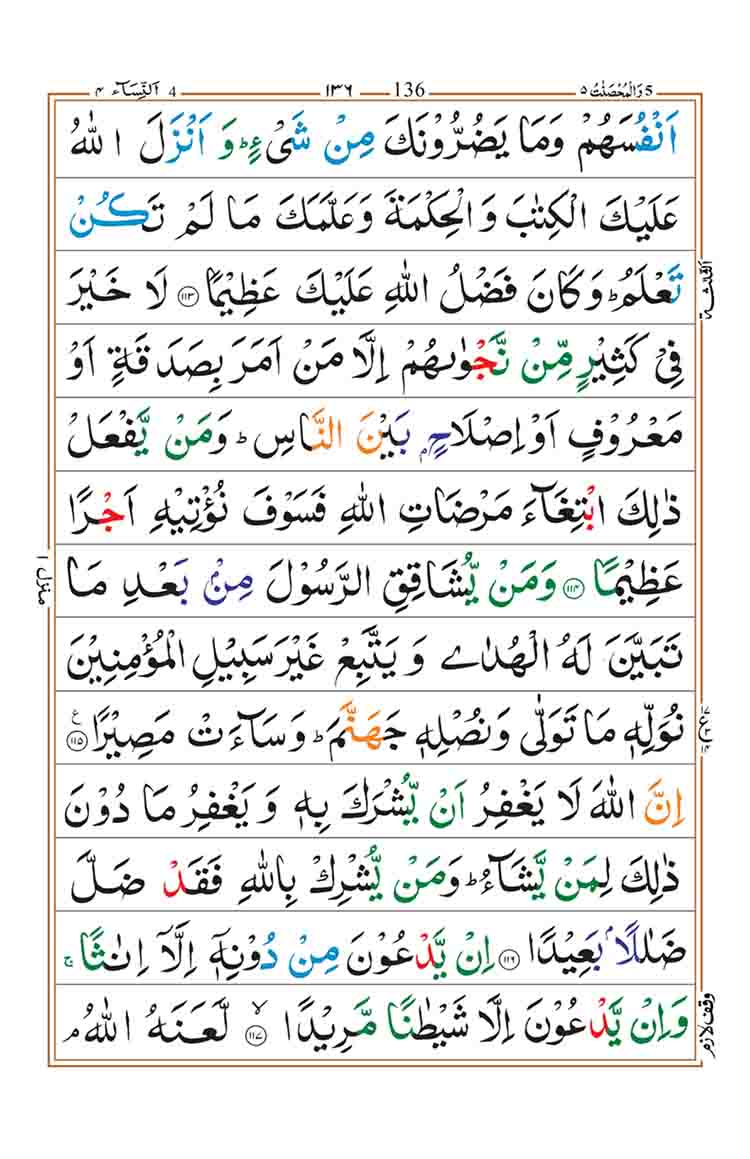 5 وَالْمُحْصَنٰتُ ۵ 136 ۱۳۶ 4 اَلنِّسَآء ۴
اَنْفُسَهُمْ وَمَا يَضُرُّوْنَكَ مِنْ شَیْءٍ ؕ وَ اَنْزَلَ اللّٰهُ
عَلَيْكَ الْكِتٰبَ وَ الْحِكْمَةَ وَعَلَّمَكَ مَا لَمْ تَكُنْ
تَعْلَمُ ؕ وَ كَانَ فَضْلُ اللّٰهِ عَلَيْكَ عَظِيْمًا ۝۱۱۳ لَا خَيْرَ
فِیْ كَثِيْرٍ مِّنْ نَّجْوٰىهُمْ اِلَّا مَنْ اَمَرَ بِصَدَقَةٍ اَوْ
مَعْرُوْفٍ اَوْ اِصْلَاحٍۭ بَيْنَ النَّاسِ ؕ وَمَنْ يَّفْعَلْ
ذٰلِكَ ابْتِغَآءَ مَرْضَاتِ اللّٰهِ فَسَوْفَ نُؤْتِيْهِ اَجْرًا
عَظِيْمًا ۝۱۱۴ وَمَنْ يُّشَاقِقِ الرَّسُوْلَ مِنْۢ بَعْدِ مَا
تَبَيَّنَ لَهُ الْهُدٰى وَ يَتَّبِعْ غَيْرَ سَبِيْلِ الْمُؤْمِنِيْنَ
نُوَلِّهٖ مَا تَوَلّٰى وَنُصْلِهٖ جَهَنَّمَ ؕ وَسَآءَتْ مَصِيْرًا ۝۱۱۵ ع
اِنَّ اللّٰهَ لَا يَغْفِرُ اَنْ يُّشْرَكَ بِهٖ وَ يَغْفِرُ مَا دُوْنَ
ذٰلِكَ لِمَنْ يَّشَآءُ ؕ وَمَنْ يُّشْرِكْ بِاللّٰهِ فَقَدْ ضَلَّ
ضَلٰلًاۢ بَعِيْدًا ۝۱۱۶ اِنْ يَّدْعُوْنَ مِنْ دُوْنِهٖۤ اِلَّاۤ اِنٰثًا ۚ
وَاِنْ يَّدْعُوْنَ اِلَّا شَيْطٰنًا مَّرِيْدًا ۙ۝۱۱۷ لَّعَنَهُ اللّٰهُ ۘ
الثلثة
منزل ۱
وقف لازم